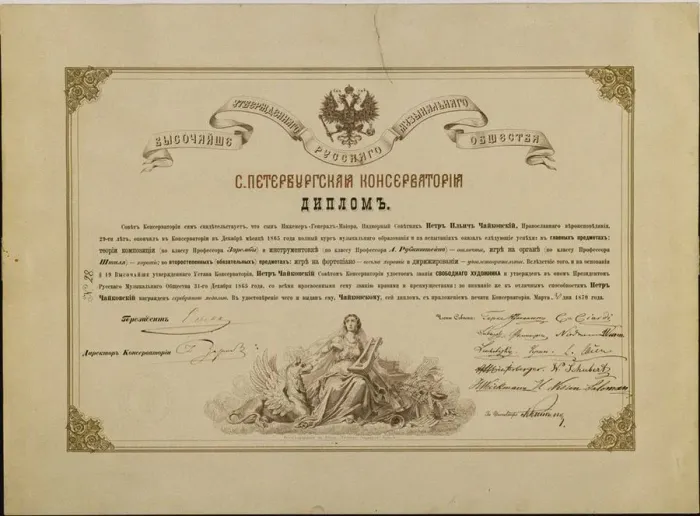 ВЫСОЧАЙШЕ УТВЕРЖДЕННАГО РУССКАГО МУЗЫКАЛЬНАГО ОБЩЕСТВА
С. ПЕТЕРБУРГСКАЯ КОНСЕРВАТОРІЯ
ДИПЛОМЪ.
Совѣтъ Консерваторіи симъ свидѣтельствуетъ, что сынъ Инженеръ-Генералъ-Маіора, Надворный Совѣтникъ Петръ Ильичъ Чайковскій, Православнаго вѣроисповѣданія,
29-ти лѣтъ, окончилъ въ Консерваторіи въ Декабрѣ мѣсяцѣ 1865 года полный курсъ музыкальнаго образованія и на испытаніяхъ оказалъ слѣдующіе успѣхи: въ главныхъ предметахъ:
теоріи композиціи (по классу Профессора Зарембы) и инструментовкѣ (по классу Профессора А. Рубинштейна) — отличные, игрѣ на органѣ (по классу Профессора
Штиля) — хорошіе; во второстепенныхъ (обязательныхъ) предметахъ: игрѣ на фортепіано — весьма хорошіе и дирижированіи — удовлетворительные. Вслѣдствіе того, и на основаніи
§ 19 Высочайше утвержденнаго Устава Консерваторіи, Петръ Чайковскій Совѣтомъ Консерваторіи удостоенъ званія СВОБОДНАГО ХУДОЖНИКА и утвержденъ въ ономъ Президентомъ
Русскаго Музыкальнаго Общества 31-го Декабря 1865 года, со всѣми присвоенными сему званію правами и преимуществами; во вниманіе же къ отличнымъ способностямъ Петръ
Чайковскій награжденъ серебряною медалью. Въ удостовѣреніе чего и выданъ ему, Чайковскому, сей дипломъ, съ приложеніемъ печати Консерваторіи. Марта дня 1870 года.
№ 28
Президентъ
Члены Совѣта:
Директоръ Консерваторіи